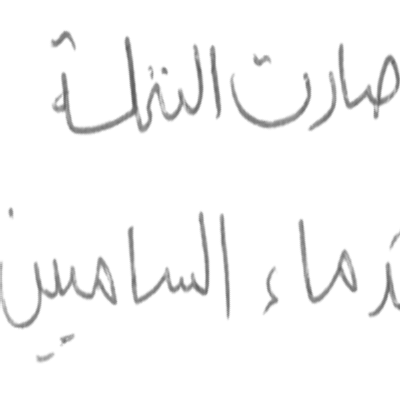 صارت النملة
دماء السامين